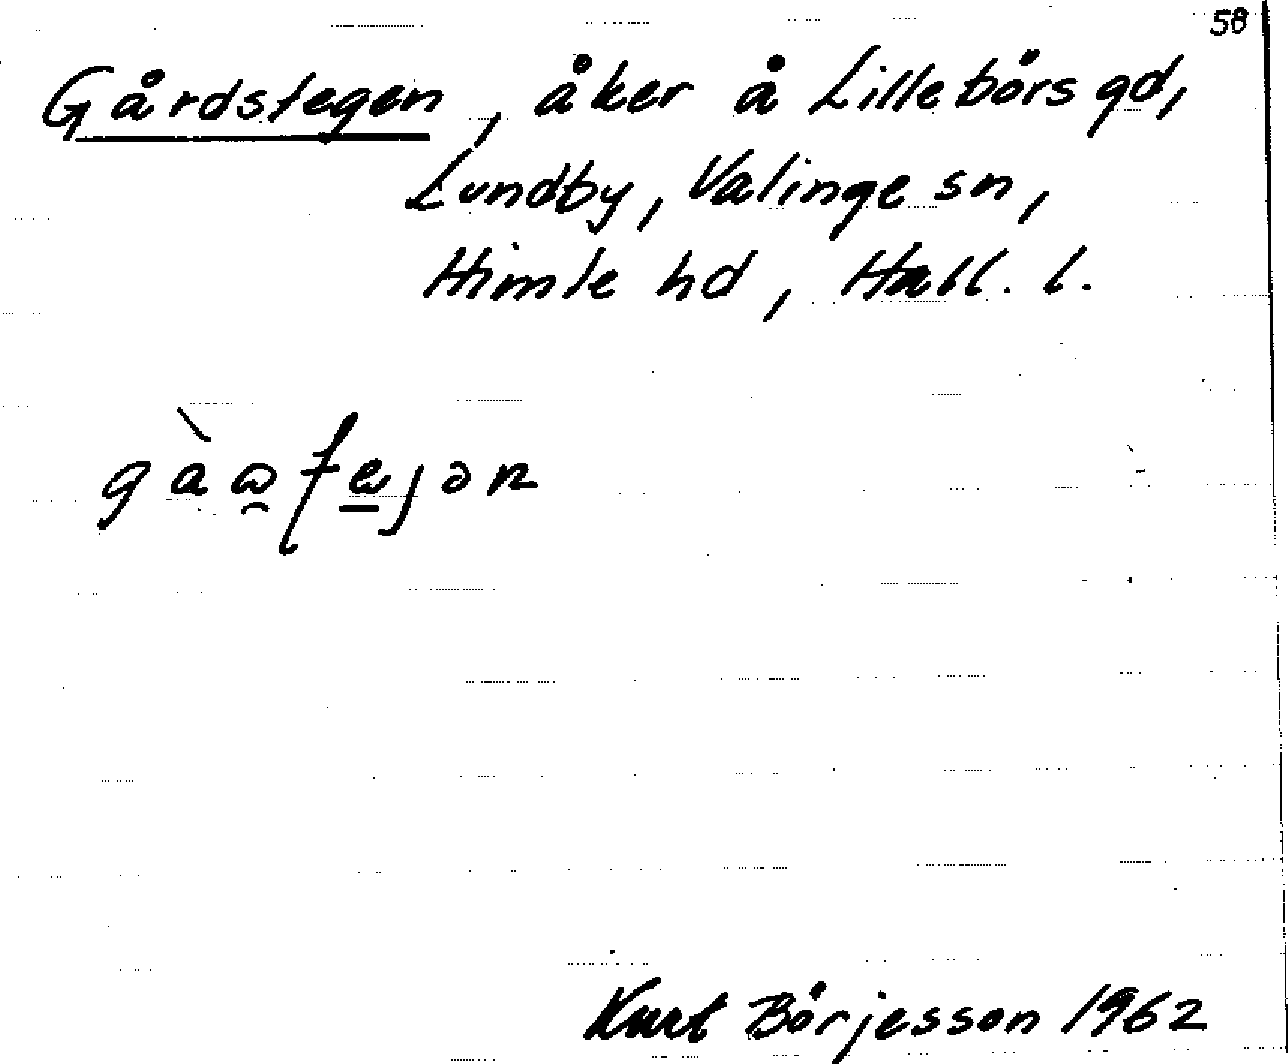 58
Gårdstegen, åker å Lillebörs gd,
Lundby, Valinge sn,
Himle hd, Hall. l.
Kurt Börjesson 1962